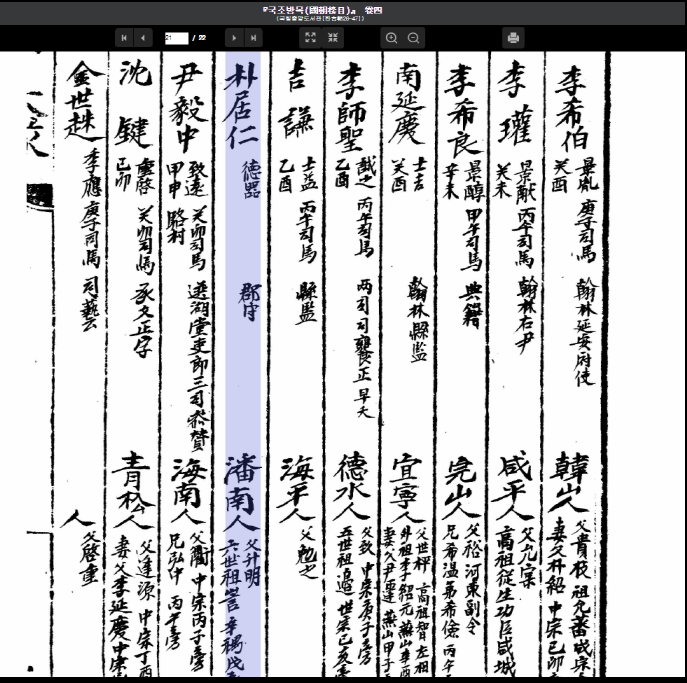 『국조방목(國朝榜目)』 卷四
(국립중앙도서관[한古朝26-47])
21 / 22
李希伯 景胤 癸酉 庚子司馬 翰林延安府使 韓山人 父貴枝 祖允蕃
李瓘 景獻 癸未 丙午司馬 翰林右尹 咸平人 父允宗 高祖從生功臣咸城
李希良 景醇 辛未 甲午司馬 典籍 完山人 父裕 河東副令 兄希溫弟希儉 丙午
南延慶 士吉 癸酉 翰林縣監 宜寧人 父世枰 高祖智左相 外祖李紹元
李師聖 哉之 乙酉 丙午司馬 兩司司饔正 早夭 德水人 五世祖邊 世宗己亥
吉謙 士益 乙酉 丙午司馬 縣監 海平人 父勉之
朴居仁 德器 郡守 潘南人 父升明 六世祖訔
尹毅中 致遠 甲申 駱村 癸卯司馬 選湖堂吏郎三司參贊 海南人 父衢 中宗丙子榜 兄弘中 丙午榜
沈鍵 己卯 癸卯司馬 承文正字 青松人 父達源 中宗丁酉 妻父李延慶 中宗
金世𧺝 季應 庚子司馬 司藝 人 父啓重